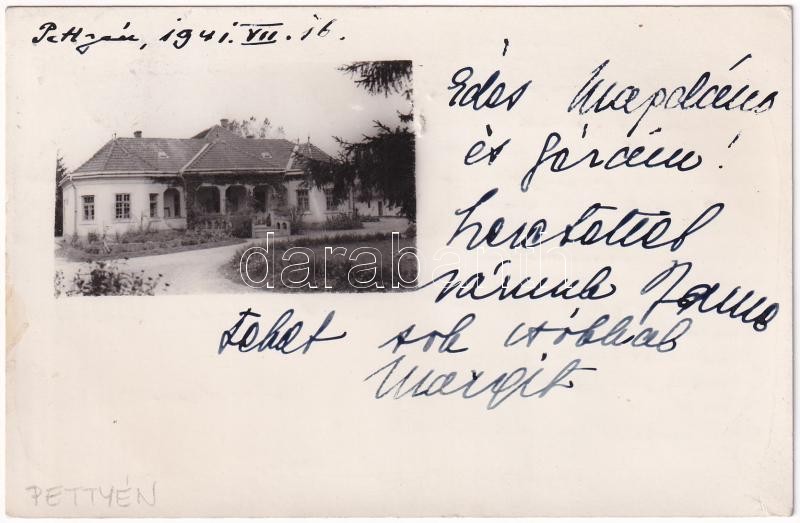 Pettyén, 1941. VII. 16.
Édes Magdáus
és Górám!
szeretettel
várunk
tehet sok csókkal
Margit
darabanth
PETTYÉN